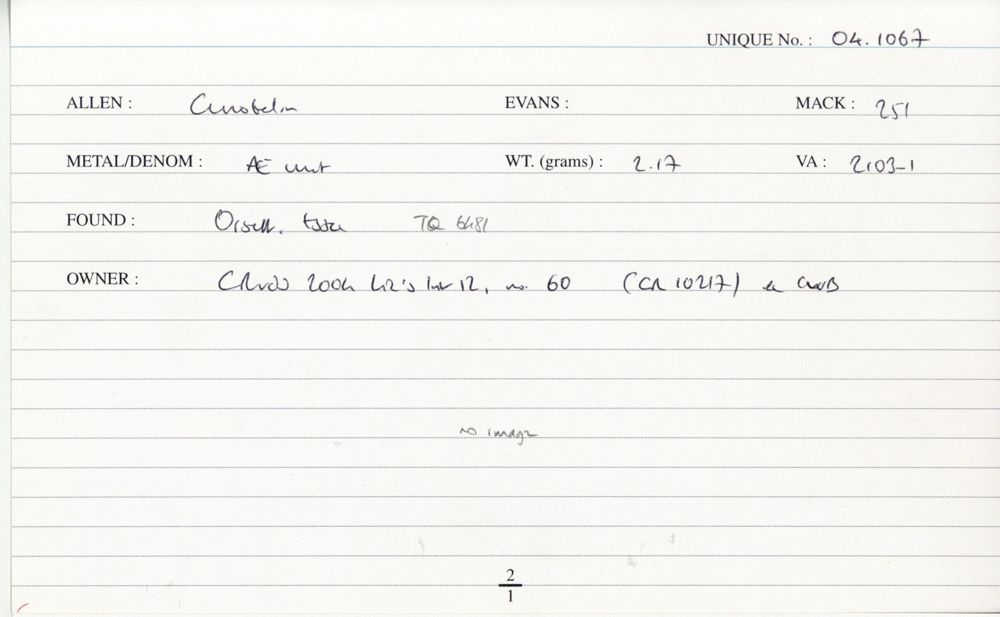 UNIQUE No. : 04.1067
ALLEN : Cunobelin EVANS : MACK : 251
METAL/DENOM : Æ unit WT. (grams) : 2.17 VA : 2103-1
FOUND : Orsett, Essex TQ 6481
OWNER : 2004 no. 60 (CR 10217)
no image
2
1